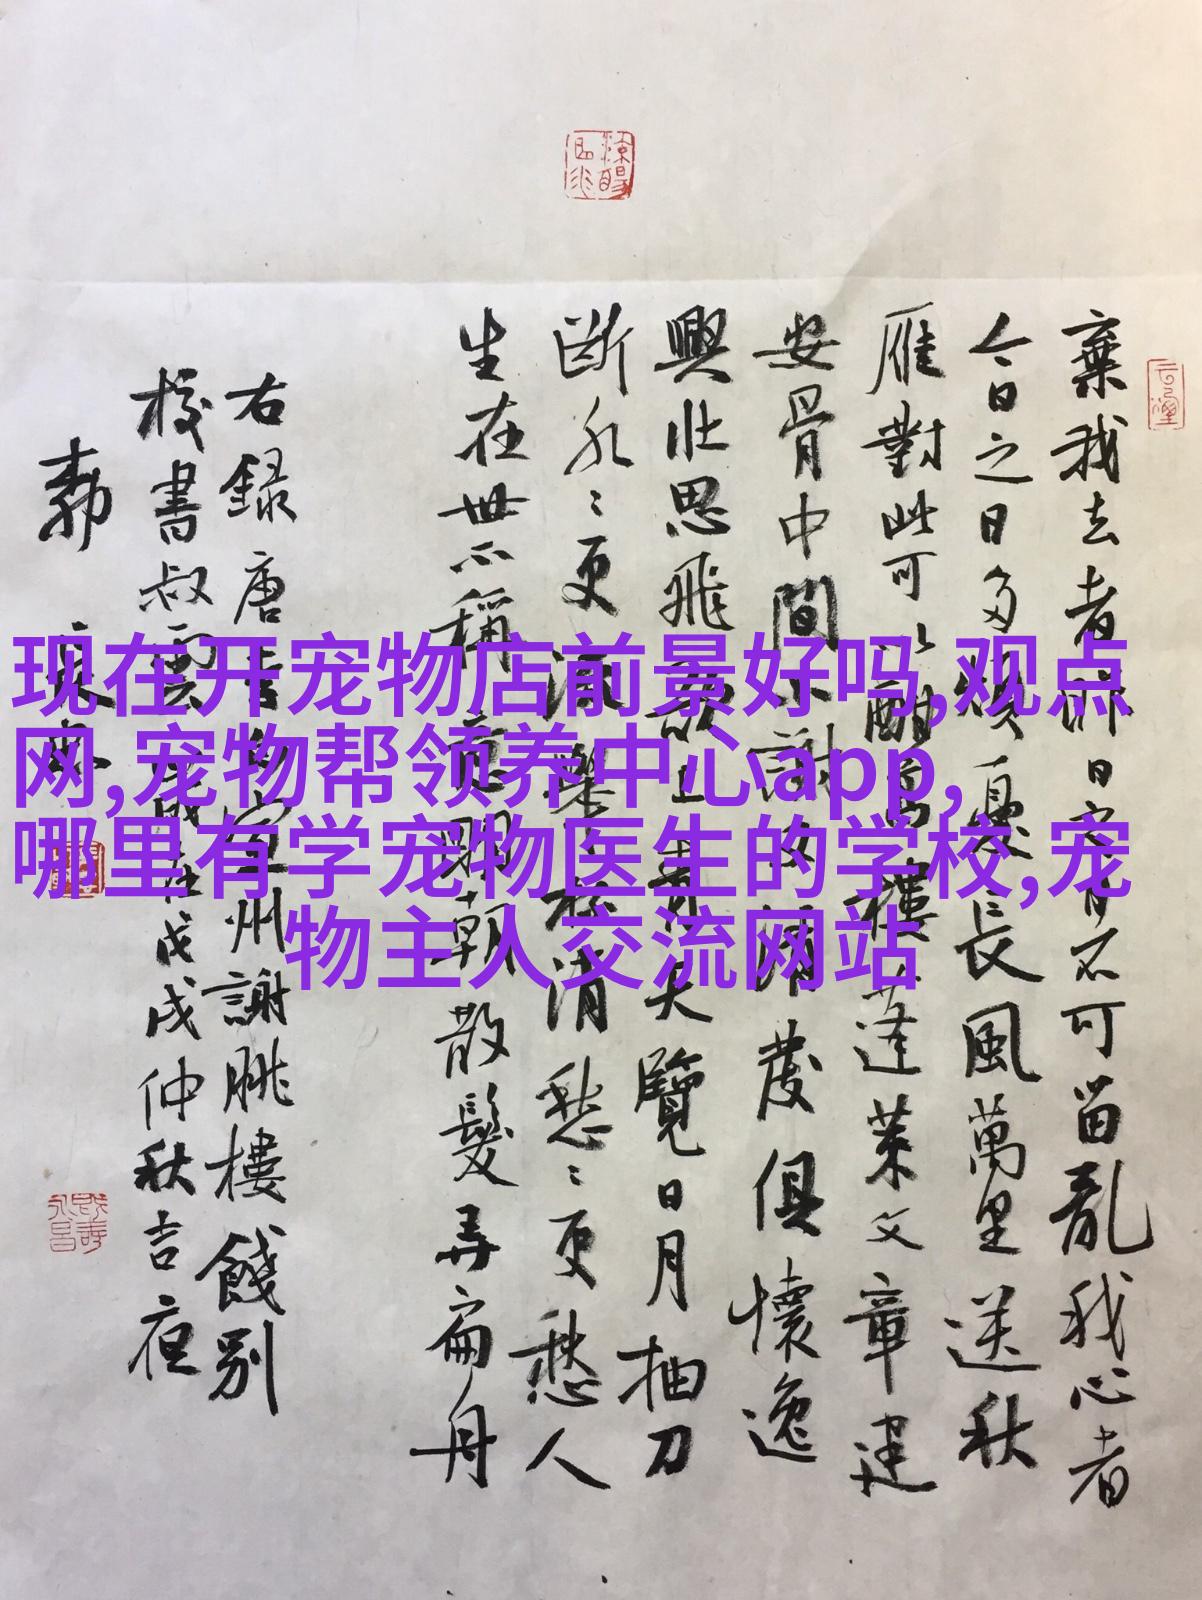 现在开宠物店前景好吗,观点
网,宠物帮领养中心app,
哪里有学宠物医生的学校,宠
物主人交流网站
棄我去者昨日之日不可留亂我心者
今日之日多煩憂長風萬里送秋
雁對此可以酣高樓蓬萊文章建
安骨中間小謝又清發俱懷逸
興壯思飛欲上青天覽日月抽刀
斷水〻更流舉杯消愁〻更愁人
生在世不稱意明朝散髮弄扁舟
右録唐李白宣州謝朓樓餞別
校書叔雲歲在戊戌仲秋吉夜